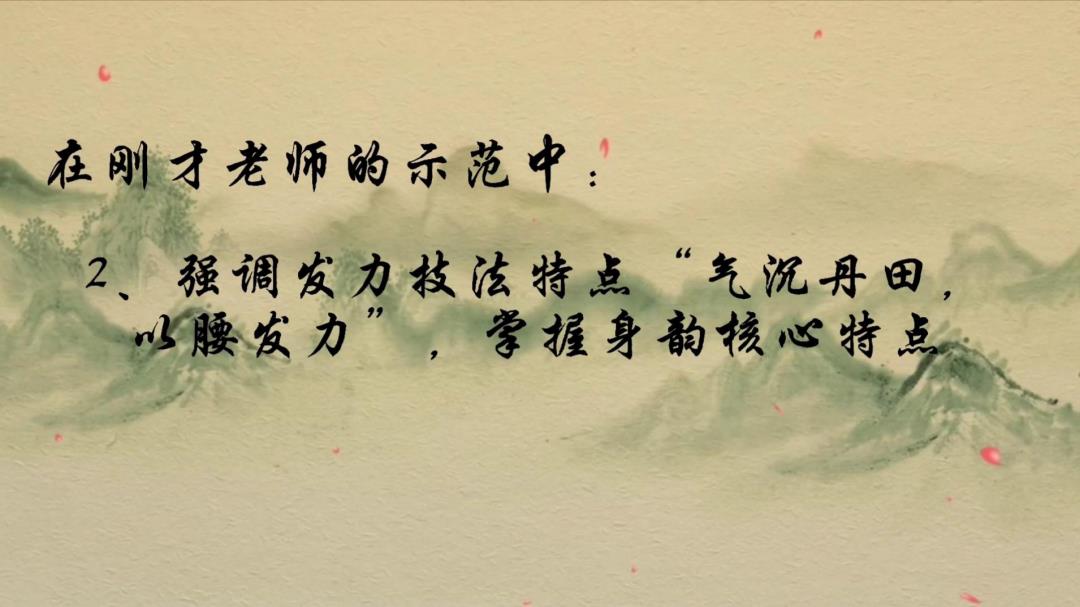 在刚才老师的示范中：
2、强调发力技法特点“气沉丹田，
以腰发力”，掌握身韵核心特点